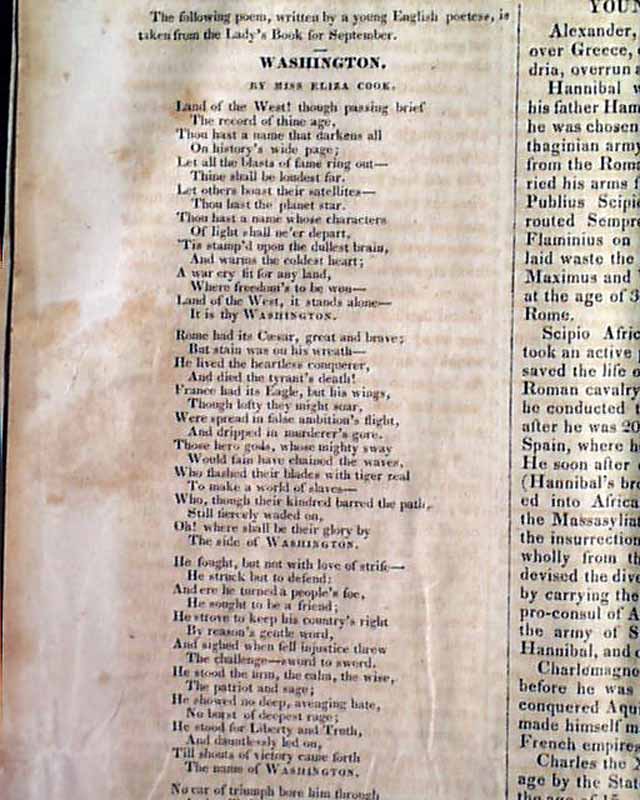 The following poem, written by a young English poetess, is
taken from the Lady's Book for September.
WASHINGTON.
BY MISS ELIZA COOK.
Land of the West! though passing brief
The record of thine age,
Thou hast a name that darkens all
On history's wide page;
Let all the blasts of fame ring out—
Thine shall be loudest far.
Let others boast their satellites—
Thou hast the planet star.
Thou hast a name whose characters
Of light shall ne'er depart,
'Tis stamp'd upon the dullest brain,
And warms the coldest heart;
A war cry fit for any land,
Where freedom's to be won—
Land of the West, it stands alone—
It is thy WASHINGTON.
Rome had its Cæsar, great and brave;
But stain was on his wreath—
He lived the heartless conquerer,
And died the tyrant's death!
France had its Eagle, but his wings,
Though lofty they might soar,
Were spread in false ambition's flight,
And dripped in murderer's gore.
Those hero gods, whose mighty sway
Would fain have chained the waves,
Who flashed their blades with tiger zeal
To make a world of slaves—
Who, though their kindred barred the path,
Still fiercely waded on,
Oh! where shall be their glory by
The side of WASHINGTON.
He fought, but not with love of strife—
He struck but to defend;
And ere he turned a people's foe,
He sought to be a friend;
He strove to keep his country's right
By reason's gentle word,
And sighed when fell injustice threw
The challenge—sword to sword.
He stood the firm, the calm, the wise,
The patriot and sage;
He showed no deep, avenging hate,
No burst of deepest rage;
He stood for Liberty and Truth,
And dauntlessly led on,
Till shouts of victory came forth
The name of WASHINGTON.
No car of triumph bore him through
YOUN
Alexander,
over Greece,
dria, overrun a
Hannibal w
his father Ham
he was chosen
thaginian army
from the Roma
ried his arms f
Publius Scipio
routed Sempr
Flaminius on
laid waste the
Maximus and
at the age of 3
Rome.
Scipio Afric
took an active p
saved the life o
Roman cavalry
he conducted t
after he was 20
Spain, where h
He soon after
(Hannibal's bro
ed into Africa
the Massasylia
the insurrection
wholly from th
devised the dive
by carrying the
pro-consul of A
the army of S
Hannibal, and c
Charlemagne
before he was
conquered Aqui
made himself m
French empires
Charles the X
age by the Stat